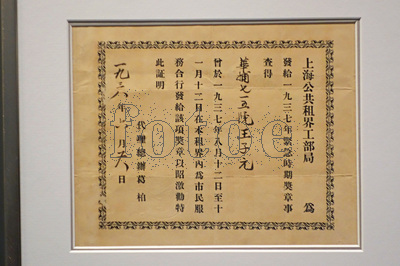 上海公共租界工部局 為
發給一九三七年緊急時期獎章事
查得
華捕七一五號王子元
曾於一九三七年八月十二日至十
一月十二日在本租界內為市民服
務合行發給該項獎章以昭激勸特
此証明
代理總辦葛柏
一九三八年 月 日
fotoe